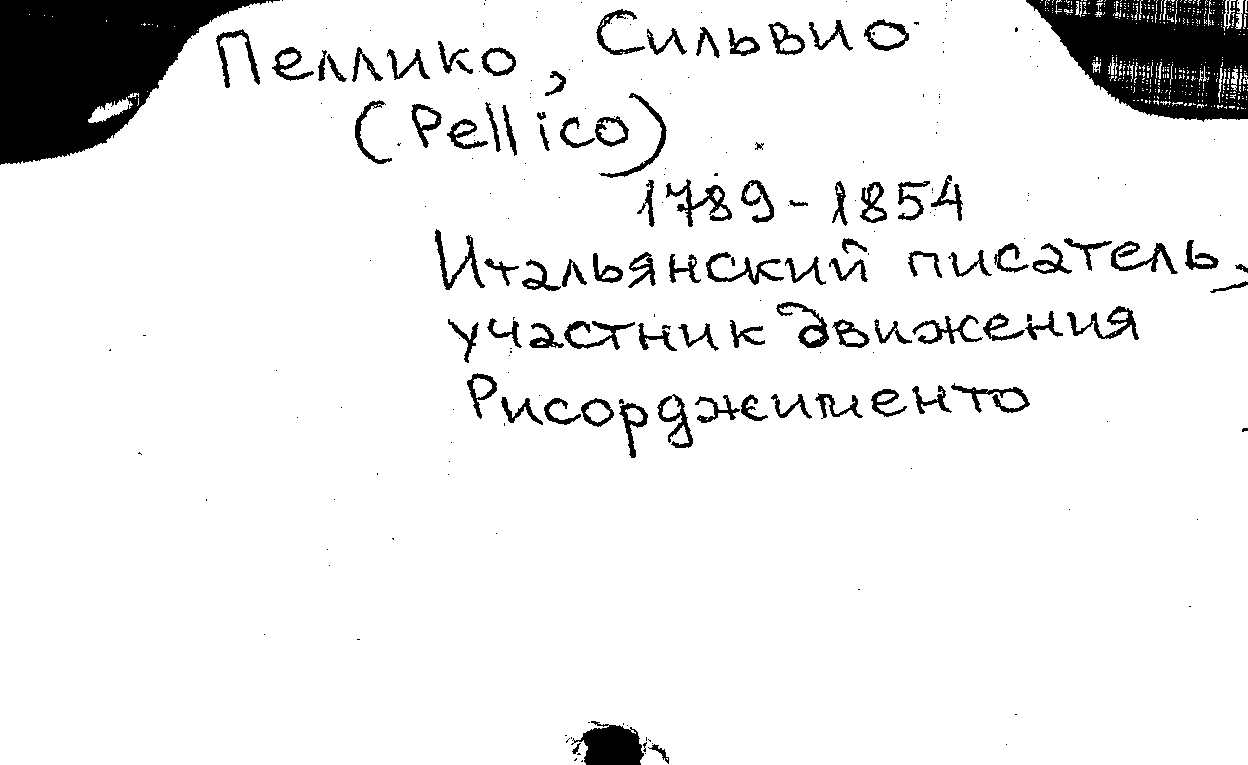 Пеллико, Сильвио
(Pellico)
1789-1854
Итальянский писатель,
участник движения
Рисорджименто